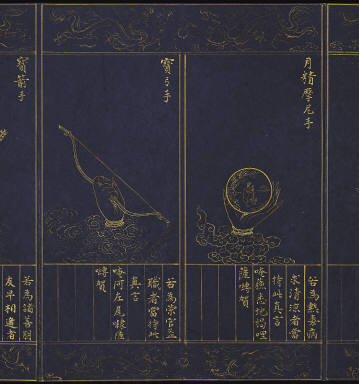 月精摩尼手
若為熱毒病
求清涼者當
持此真言
唵穌悉地揭哩
薩嚩賀
寶弓手
若為榮官益
職者當持此
真言
唵阿左尾㘑薩
嚩賀
寶箭手
若為諸善朋
友早相逢者